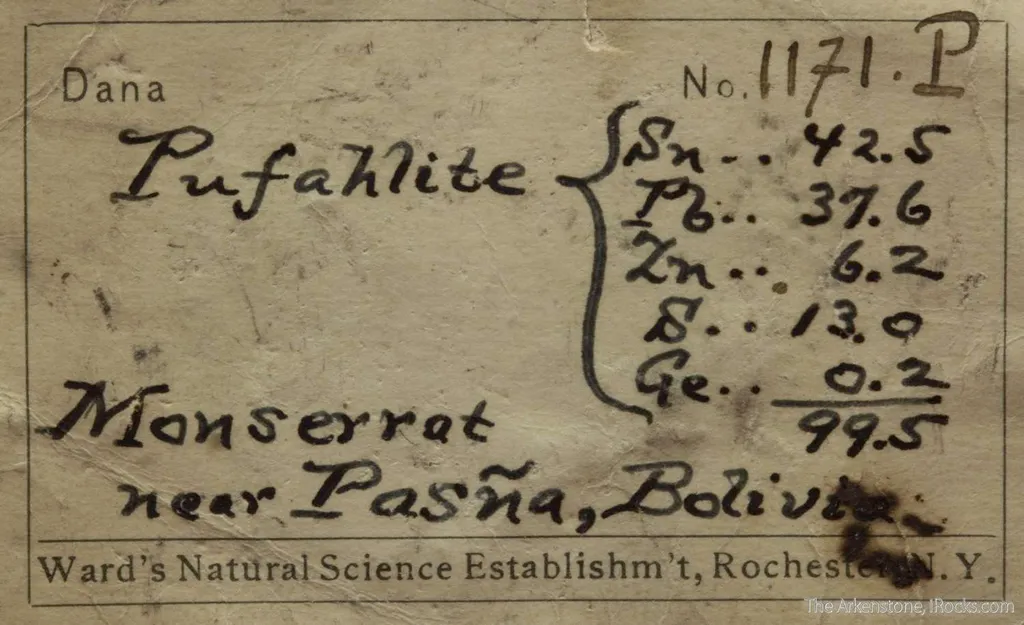 Dana
No. 1171.P
Pufahlite
Sn.. 42.5
Pb.. 37.6
Zn.. 6.2
S.. 13.0
Ge.. 0.2
99.5
Monserrat
near Pasña, Bolivia.
Ward's Natural Science Establishm't, Rochester, N. Y.
The Arkenstone, iRocks.com